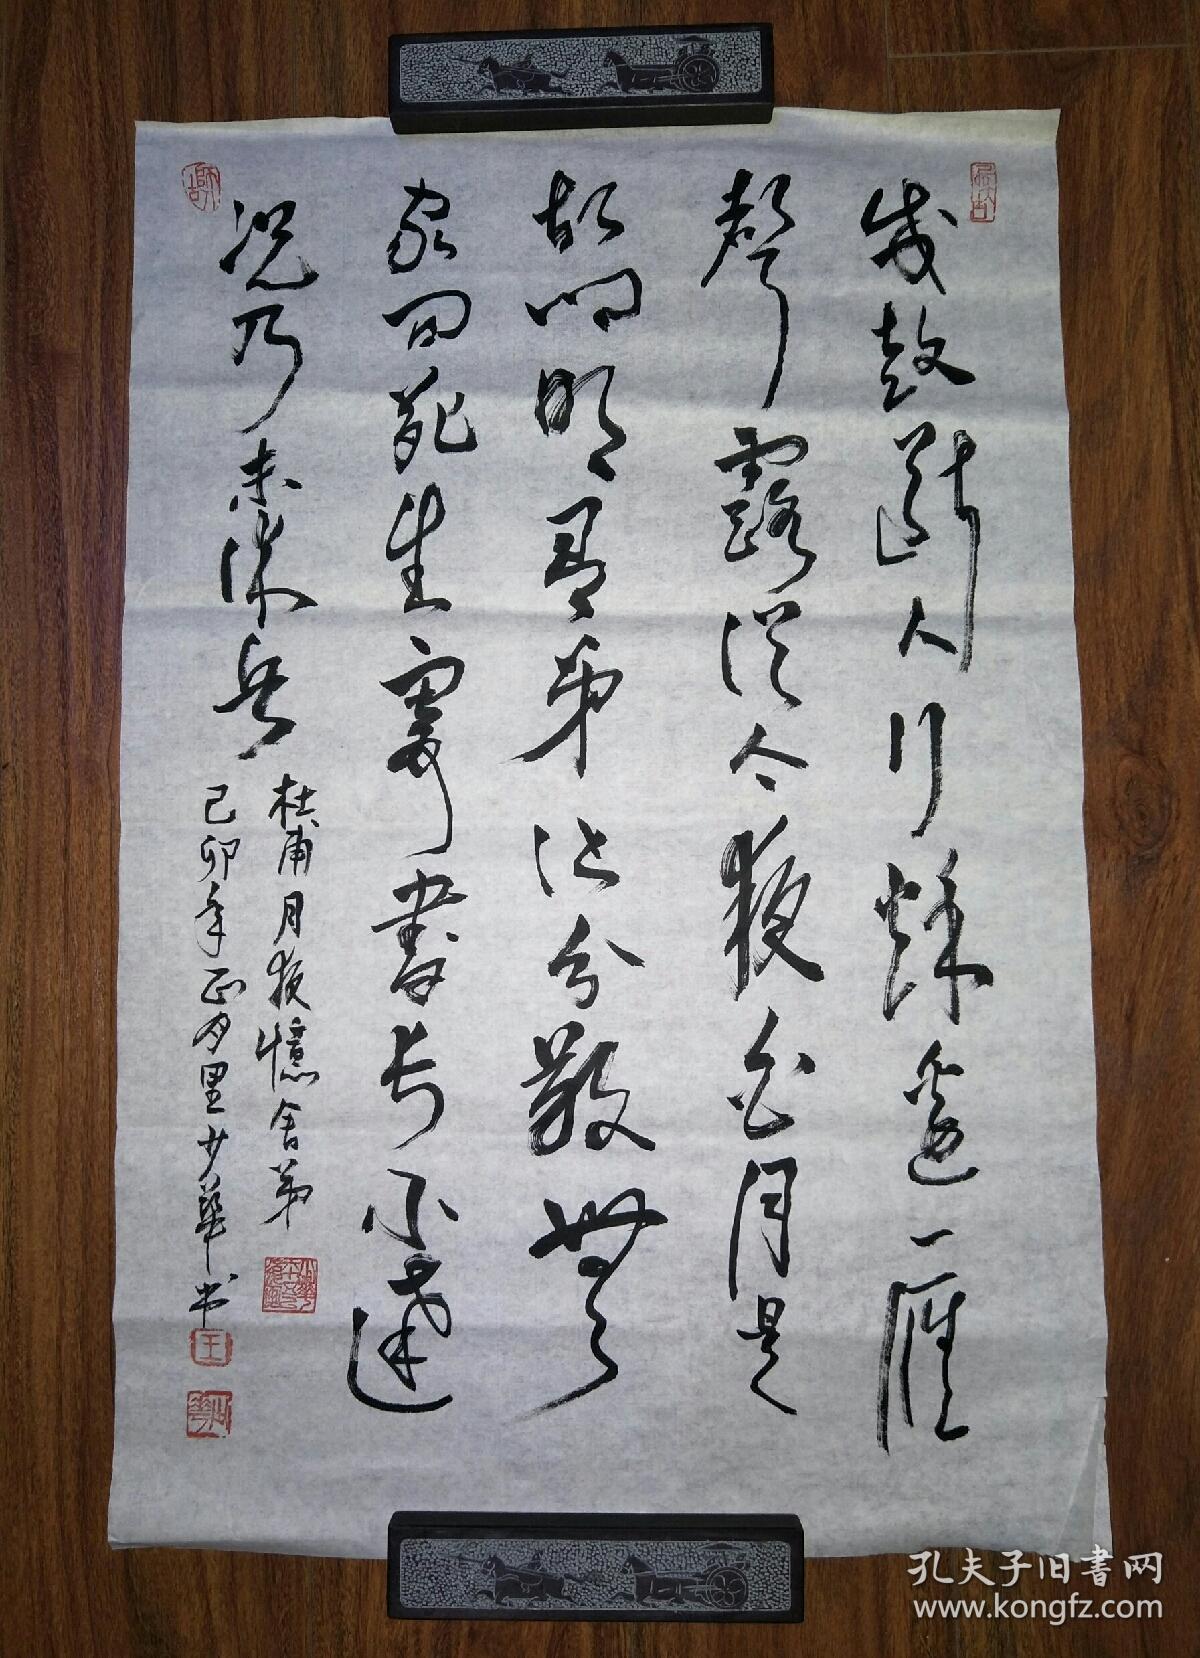 戍鼓斷人行秋邊一雁
聲露從今夜白月是
故鄉明有弟皆分散無
家問死生寄書長不達
况乃未休兵
杜甫月夜憶舍弟
己卯年正月里少華书
王
孔夫子旧书网
www.kongfz.com